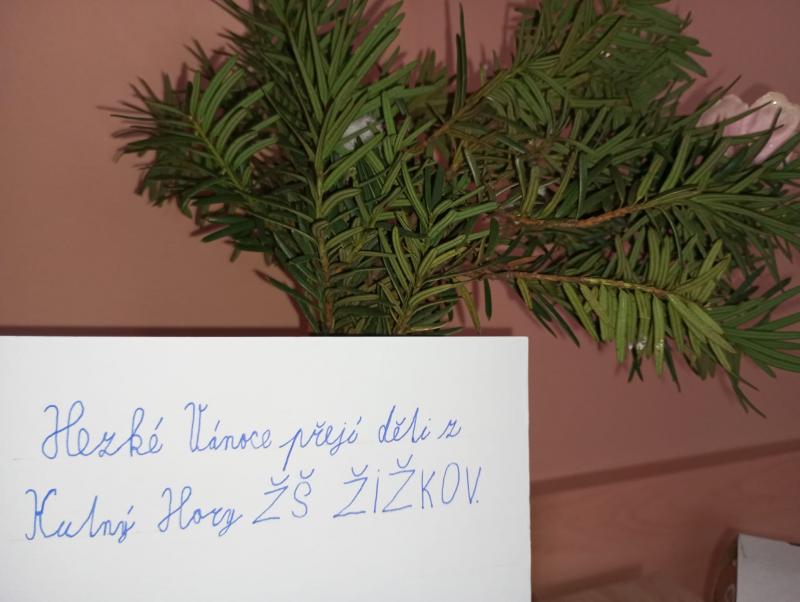 Hezké Vánoce přejí děti z
Kutný Hory ŽŠ ŽIŽKOV.